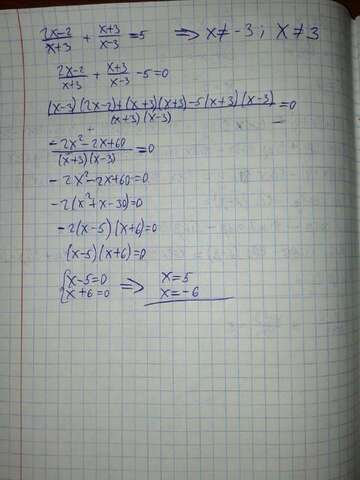 (2x-2)/(x+3) + (x+3)/(x-3) = 5 ⟹ x ≠ -3; x ≠ 3
(2x-2)/(x+3) + (x+3)/(x-3) - 5 = 0
((x-3)(2x-2)+(x+3)(x+3)-5(x+3)(x-3))/((x+3)(x-3)) = 0
(-2x²-2x+60)/((x+3)(x-3)) = 0
-2x²-2x+60=0
-2(x²+x-30)=0
-2(x-5)(x+6)=0
(x-5)(x+6)=0
{x-5=0 ⟹ x=5
x+6=0 x=-6